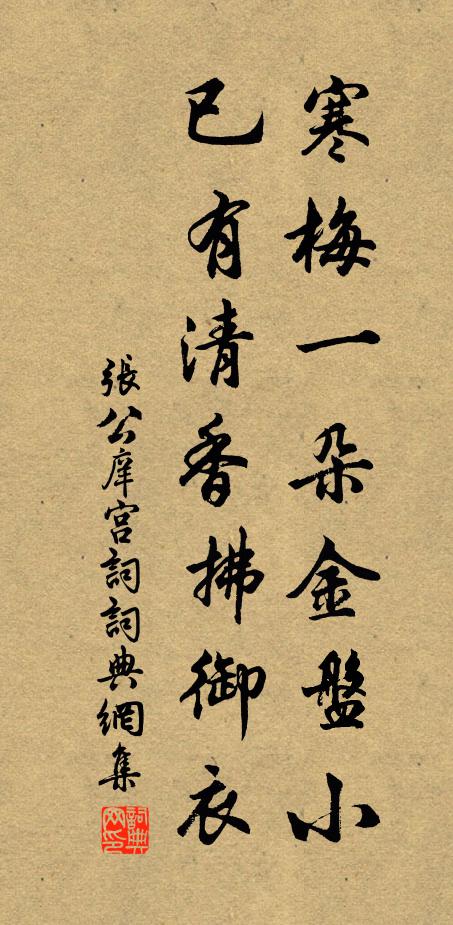 寒梅一朵金盤小
已有清香拂御衣
張公庠宮詞詞典網集
詞典网印